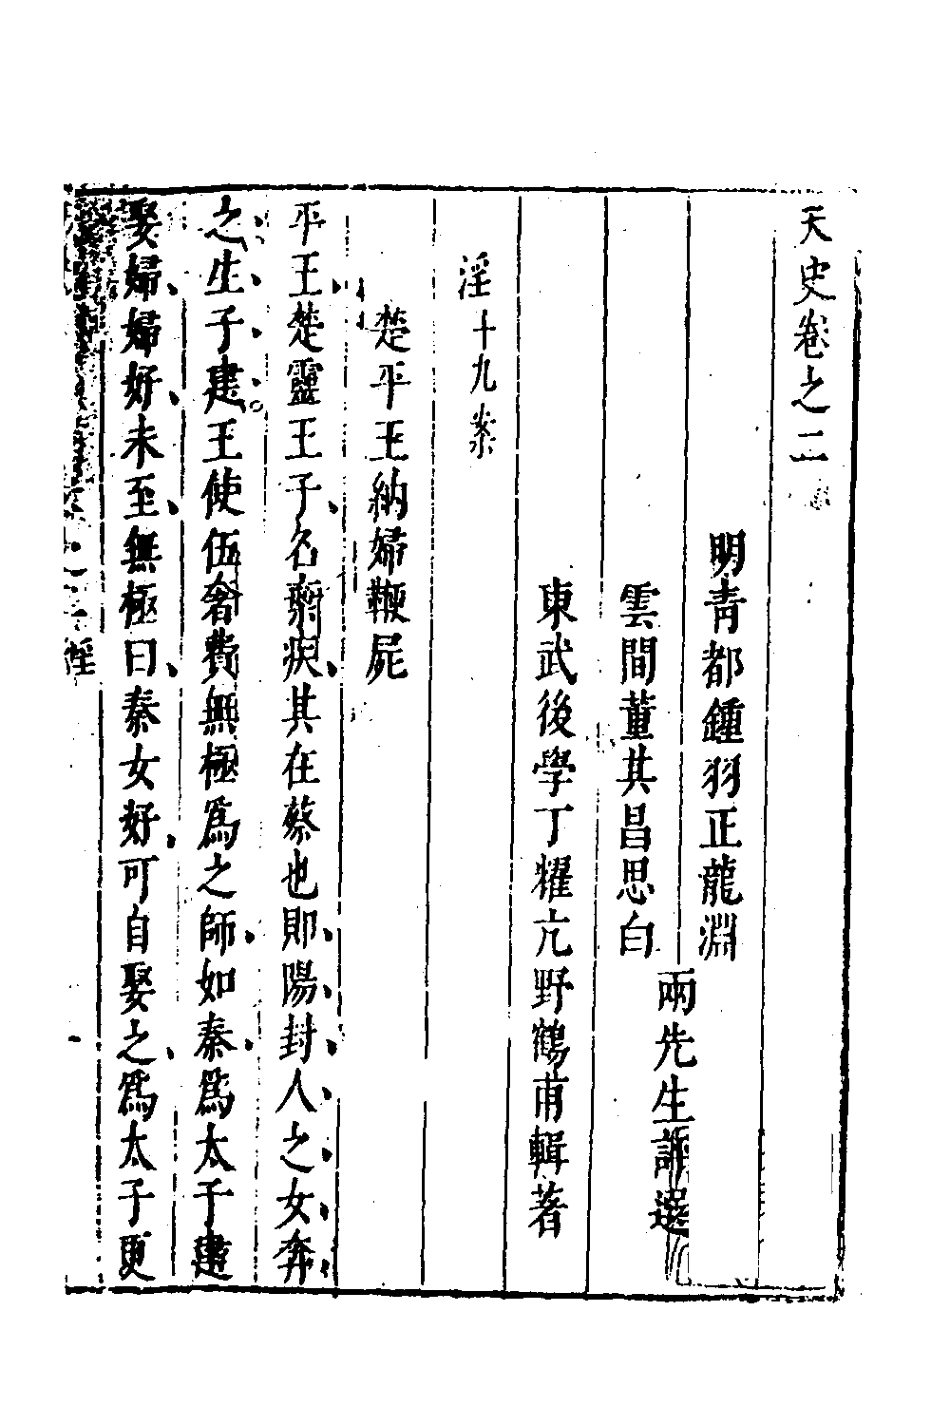 天史卷之二
明青都鍾羽正龍淵
雲間董其昌思白
兩先生詶選
東武後學丁耀亢野鶴甫輯著
淫十九案
楚平王納婦鞭屍
平王楚靈王子名棄疾其在蔡也則陽封人之女奔
之生子建王使伍奢費無極爲之師如秦爲太子建
娶婦婦好未至無極曰秦女好可自娶之爲太子更
淫